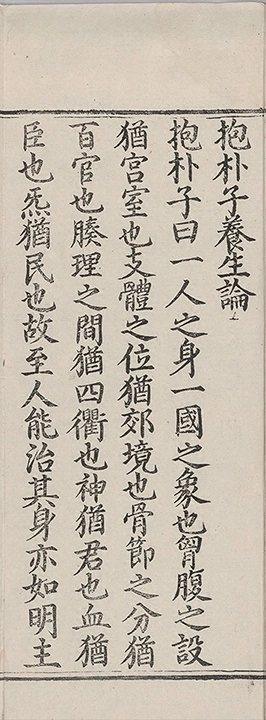 抱朴子養生論
抱朴子曰一人之身一國之象也胷腹之設
猶宫室也支體之位猶郊境也骨節之分猶
百官也腠理之間猶四衢也神猶君也血猶
臣也炁猶民也故至人能治其身亦如明主